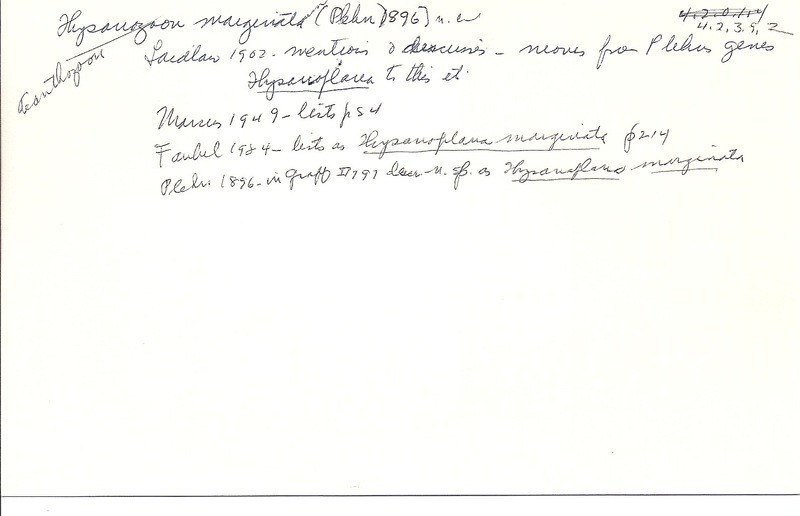 Thysanozoon marginata (Plehn 1896) n.
4.2.0.1.4
4.2.3.9.2
Acanthozoon
Laidlaw 1902 - mentions & discusses - moves from Plehns genes
Thysanoplana to this
Marcus 1949 - lists p 54
Faubel 1984 - lists as Thysanoplana marginata p214
Plehn 1896 - in Graff II 797 descr. n. sp. as Thysanoplana marginata